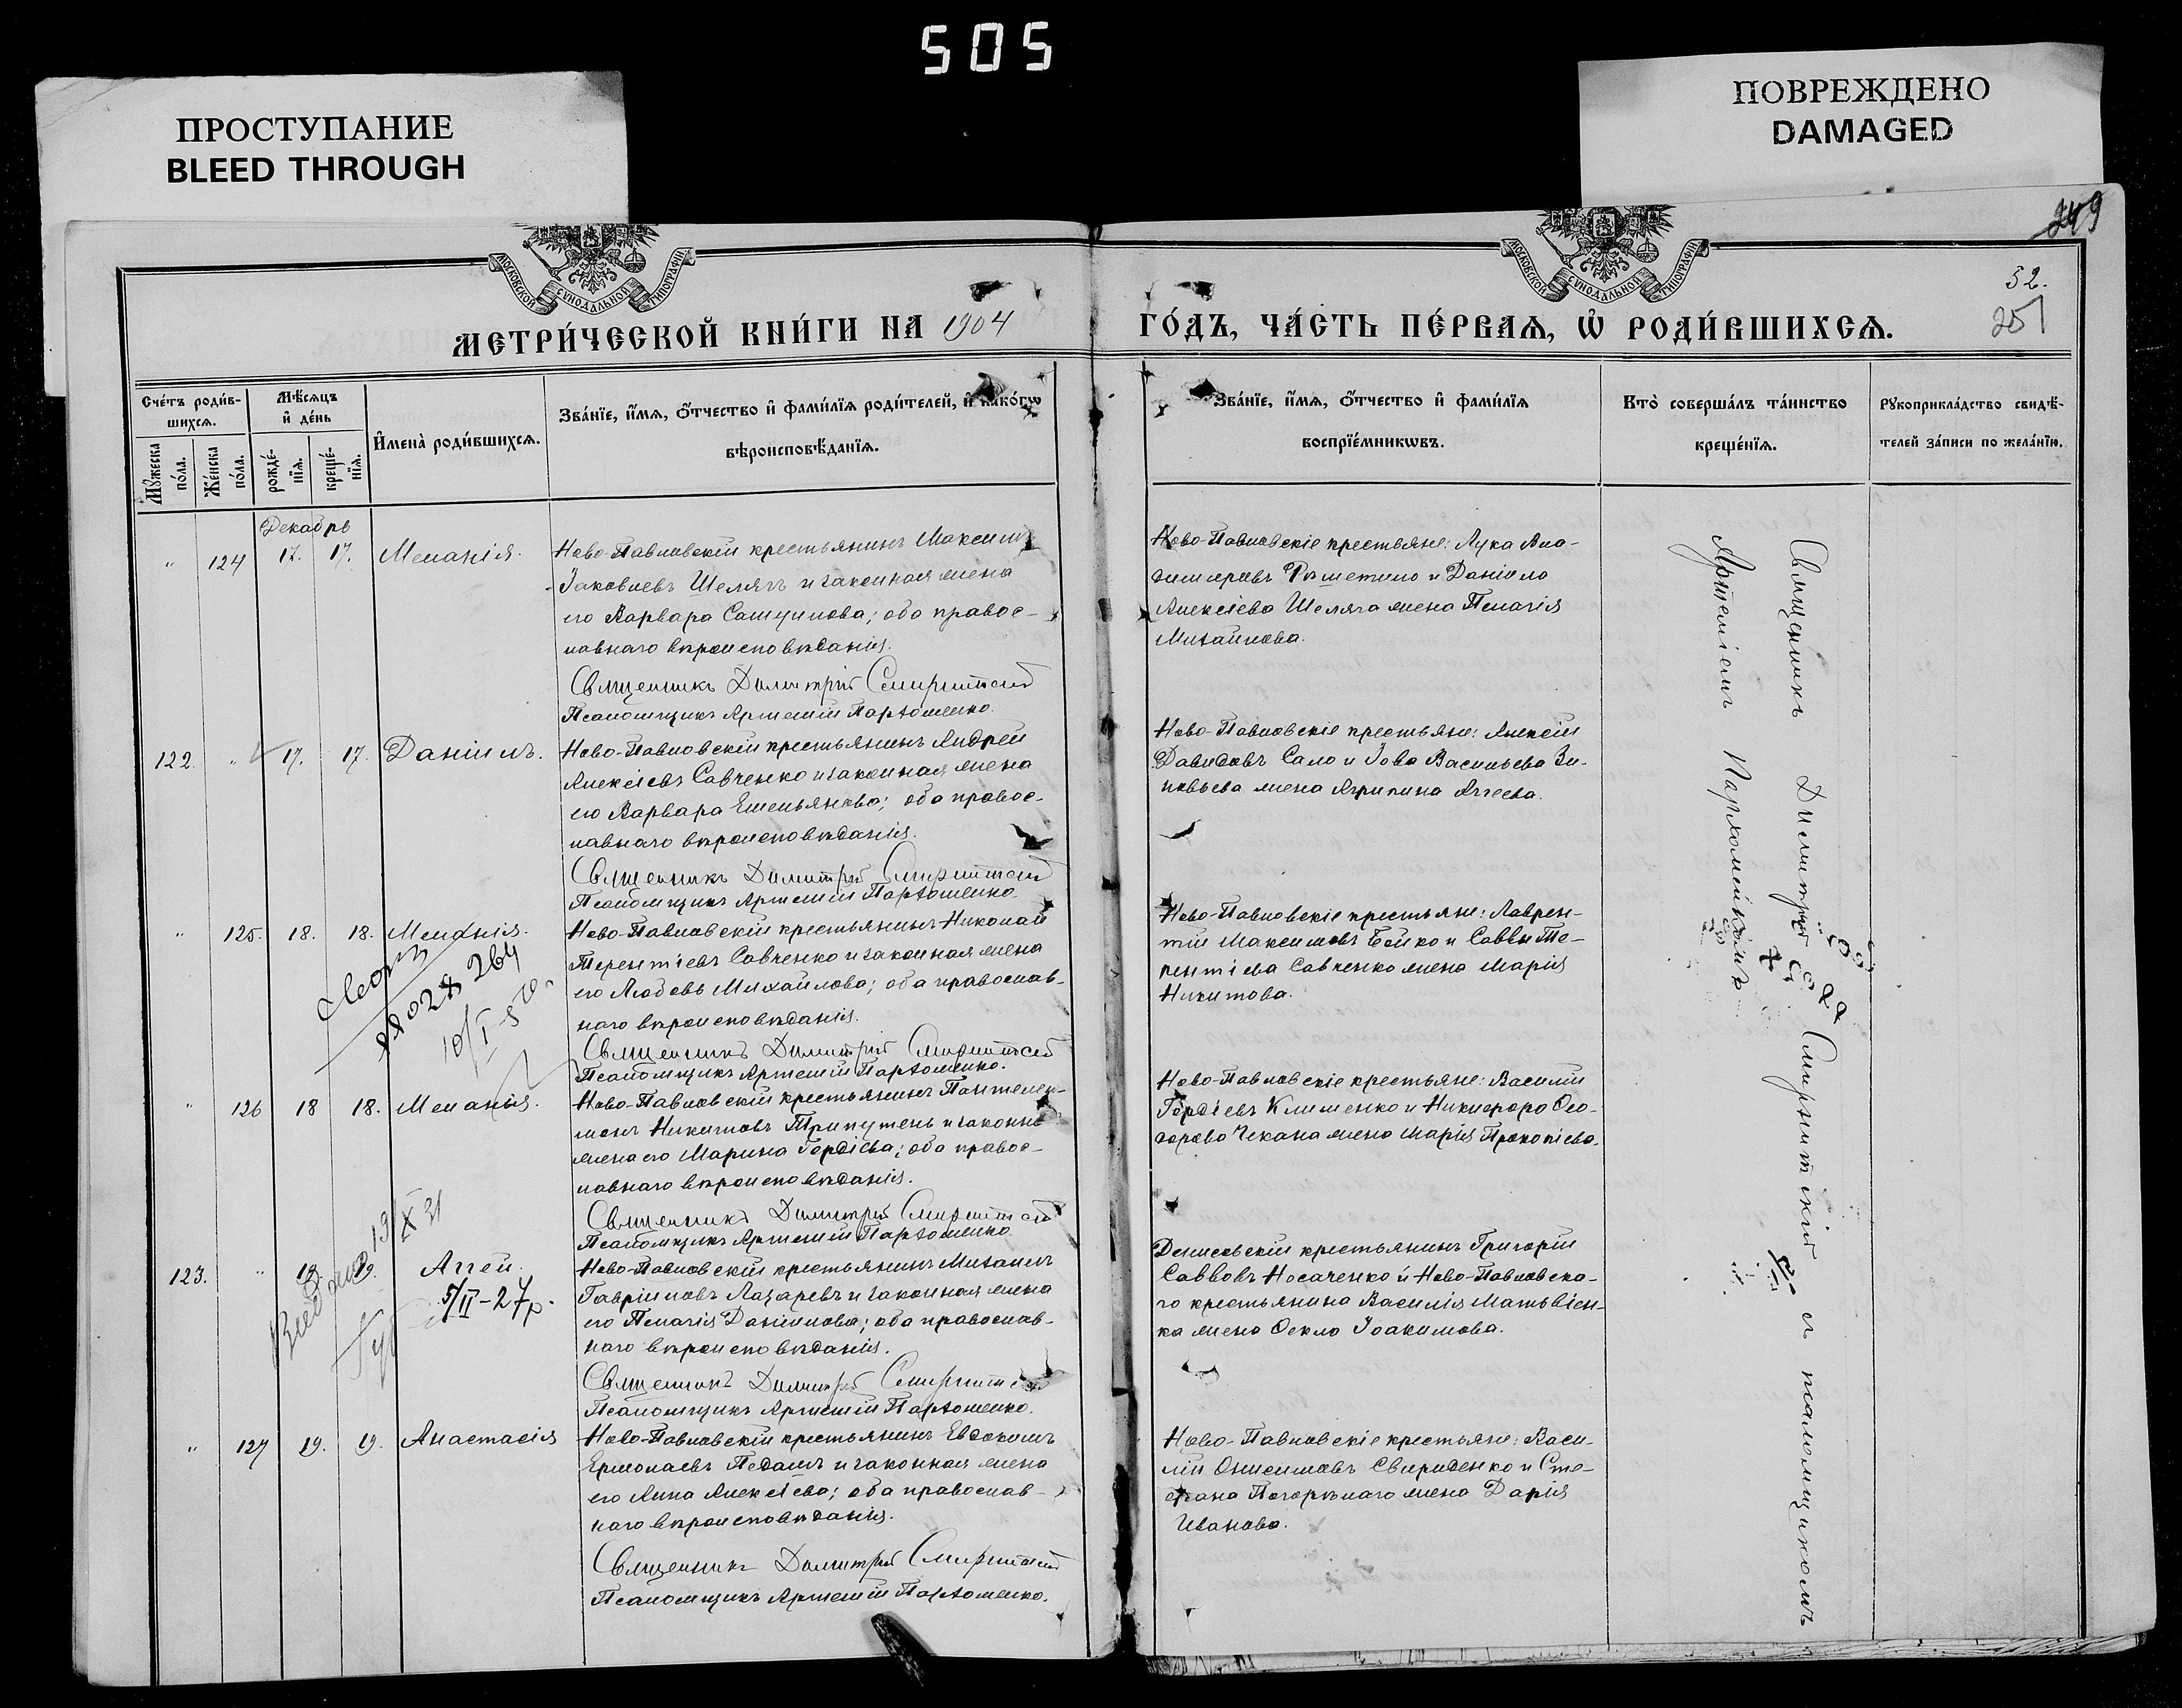 505
ПРОСТУПАНИЕ
BLEED THROUGH
ПОВРЕЖДЕНО
DAMAGED
249
52.
251
МОСКОВСКОЙ СѴНОДАЛЬНОЙ ТИПОГРАФІИ
МОСКОВСКОЙ СѴНОДАЛЬНОЙ ТИПОГРАФІИ
МЕТРИ́ЧЕСКОЙ КНИ́ГИ НА 1904
ГО́ДЪ, ЧА́СТЬ ПЕ́РВАѦ, Ѡ҆ РОДИ́ВШИХСѦ.
Сче́тъ роди́в-
шихсѧ.
Мѣ́сѧцъ
и҆ де́нь
И҆мена̀ роди́вшихсѧ.
Зва́нїе, и҆́мѧ, ѻ҆́тчество и҆ фами́лїѧ роди́телей, и҆ како́гѡ
вѣроисповѣ́данїѧ.
Мꙋ́жеска
по́ла.
Же́нска
по́ла.
рожде́-
нїѧ.
креще́-
нїѧ.
Зва́нїе, и҆́мѧ, ѻ҆́тчество и҆ фами́лїѧ
воспрїе́мникѡвъ.
Кто̀ соверша́лъ та́инство
креще́нїѧ.
Рꙋкоприкла́дство свидѣ́-
телей за́писи по жела́нїю.
Декабрь
" 124 17. 17. Меланія.
Ново-Павловскій крестьянинъ Максимъ
Іаковлевъ Шелягъ и законная жена
его Варвара Самуилова; оба правос-
лавнаго вѣроисповѣданія.
Священникъ Димитрій
Псаломщикъ Артемій Пархоменко.
Ново-Павловскіе крестьяне: Лука Вла-
димировъ и Даніила
Алексіева Шеляга жена Пелагія
Михайлова.
122. " 17. 17. Даніилъ.
Ново-Павловскій крестьянинъ Андрей
Алексіевъ Савченко и законная жена
его Варвара Емельянова; оба правос-
лавнаго вѣроисповѣданія.
Священникъ Димитрій
Псаломщикъ Артемій Пархоменко.
Ново-Павловскіе крестьяне: Алексій
Давидовъ Сало и Іова Васильева Зи-
новьева жена Агрипина Аггеева.
" 125. 18. 18. Меланія.
Ново-Павловскій крестьянинъ Николай
Терентіевъ Савченко и законная жена
его Любовь Михайлова; оба православ-
наго вѣроисповѣданія.
Священникъ Димитрій
Псаломщикъ Артемій Пархоменко.
Ново-Павловскіе крестьяне: Лаврен-
тій Максимовъ Бойко и Саввы Те-
рентіева Савченко жена Марія
Никитова.
" 126 18 18. Меланія.
Ново-Павловскій крестьянинъ Пантелей-
монъ Никитовъ Трипутень и законная
жена его Марина Гордіева; оба правос-
лавнаго вѣроисповѣданія.
Священникъ Димитрій
Псаломщикъ Артемій Пархоменко.
Ново-Павловскіе крестьяне: Василій
Гордіевъ Клименко и Никифора Ѳео-
дорова Чекана жена Марія Прокопіева.
123. " 19. 19. Аггей.
5/II-27р.
Ново-Павловскій крестьянинъ Михаилъ
Гавріиловъ Лазаревъ и законная жена
его Пелагія Даніилова; оба православ-
наго вѣроисповѣданія.
Священникъ Димитрій
Псаломщикъ Артемій Пархоменко.
крестьянинъ Григорій
Саввовъ Носаченко и Ново-Павловска-
го крестьянина Василія Матвіен-
ка жена Ѳекла Іоакимова.
" 127 19. 19. Анастасія
Ново-Павловскій крестьянинъ Евдокимъ
Ермолаевъ и законная жена
его Анна Алексіева; оба православ-
наго вѣроисповѣданія.
Священникъ Димитрій
Псаломщикъ Артемій Пархоменко.
Ново-Павловскіе крестьяне: Васи-
лій Онисимовъ Свириденко и Сте-
фана Погорѣлаго жена Дарія
Иванова.
Священникъ Димитрій с псаломщикомъ
Артеміемъ Пархоменкомъ